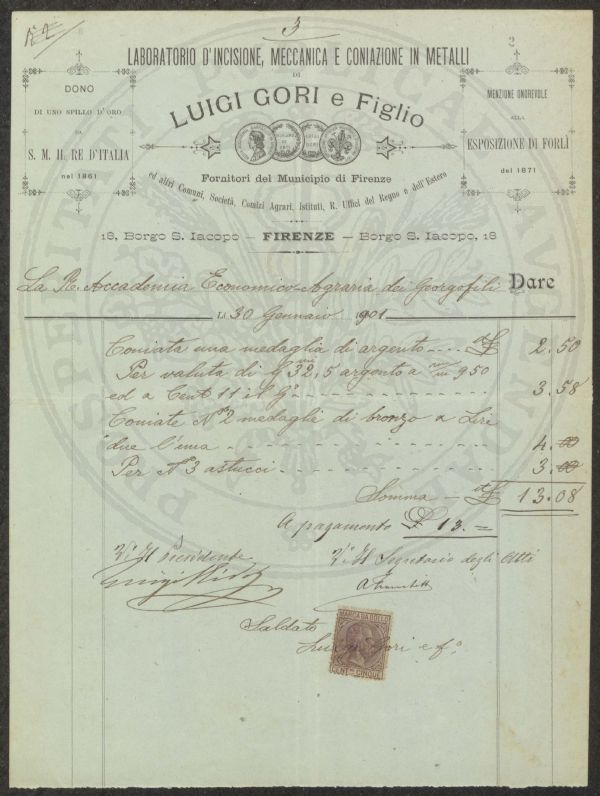 3
2
LABORATORIO D'INCISIONE, MECCANICA E CONIAZIONE IN METALLI
DI
LUIGI GORI e Figlio
DONO
DI UNO SPILLO D'ORO
DA
S. M. IL RE D'ITALIA
nel 1861
MENZIONE ONOREVOLE
ALLA
ESPOSIZIONE DI FORLÌ
del 1871
Fornitori del Municipio di Firenze
ed altri Comuni, Società, Comizi Agrari, Istituti, R. Uffici del Regno e dell'Estero
18, Borgo S. Iacopo — FIRENZE — Borgo S. Iacopo, 18
La R. Accademia Economico-Agraria dei Georgofili Dare
Li 30 Gennaio 1901
Coniata una medaglia di argento ---- 2.50
Per valuta di G.mi 32,5 argento a 950
ed a Cent. 11 il G.o ---- 3.58
Coniate N.o 2 medaglie di bronzo a Lire
due l'una ---- 4.00
Per N.o 3 astucci ---- 3.00
Somma — 13.08
A pagamento £ 13.=
V.o Il Presidente
V.o Il Segretario degli Atti
Saldato
Luigi Gori e f.o
MARCA DA BOLLO
CENT. CINQUE
PROSPERITATI PUBLICAE AUGENDAE